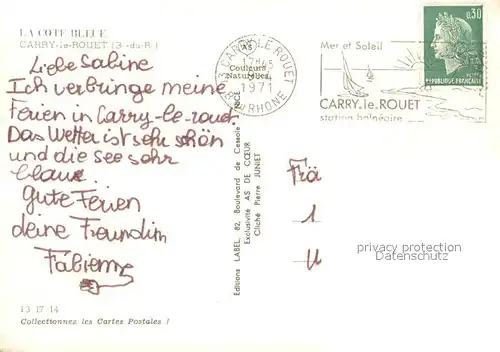 LA COTE BLEUE
CARRY-le-ROUET (B.-du-R.)
Liebe Sabine
Ich verbringe meine
Ferien in Carry-le-rouet.
Das Wetter ist sehr schön
und die See sehr
blaue.
gute Ferien
deine Freundin
Fabienne
13 17 14
Collectionnez les Cartes Postales !
AS
Couleurs
Naturelles
Editions LABEL, 82, Boulevard de Cessole
Exclusivité AS DE CŒUR
Cliché Pierre JUNIET
13 CARRY LE ROUET
17H45
1971
RHONE
Mer et Soleil
CARRY.le.ROUET
station balnéaire
0,30
REPUBLIQUE FRANÇAISE
Frä
1
U
privacy protection
www.ansichtskartenversand.com